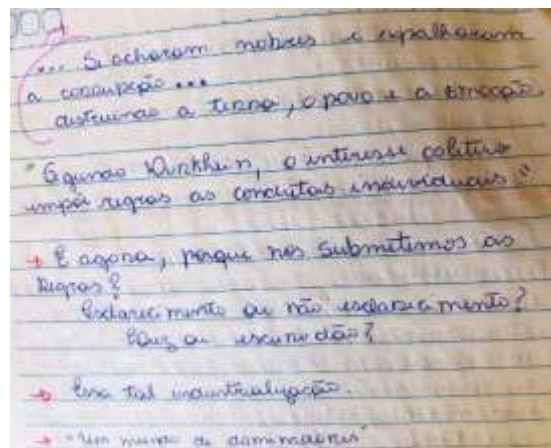 ... Se acharam nobres e espalharam
a corrupção ...
destruindo a terra, o povo e a emoção.
"Segundo Durkheim, o interesse coletivo
impõe regras as condutas individuais."
→ E agora, porque nos submetemos as
Regras?
Esclarecimento ou não esclarecimento?
Luz ou escuridão?
→ Essa tal industrialização.
→ "Um mundo de dominadores"